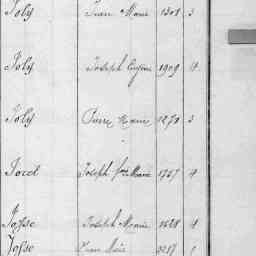 Joly Jean Marie 1301 3
Joly Joseph Eugène 1909 4
Joly Pierre Marie 1270 3
Jorel Joseph fois Marie 1757 4
Josse Joseph Marie 1628 4
Josse Jean Marie